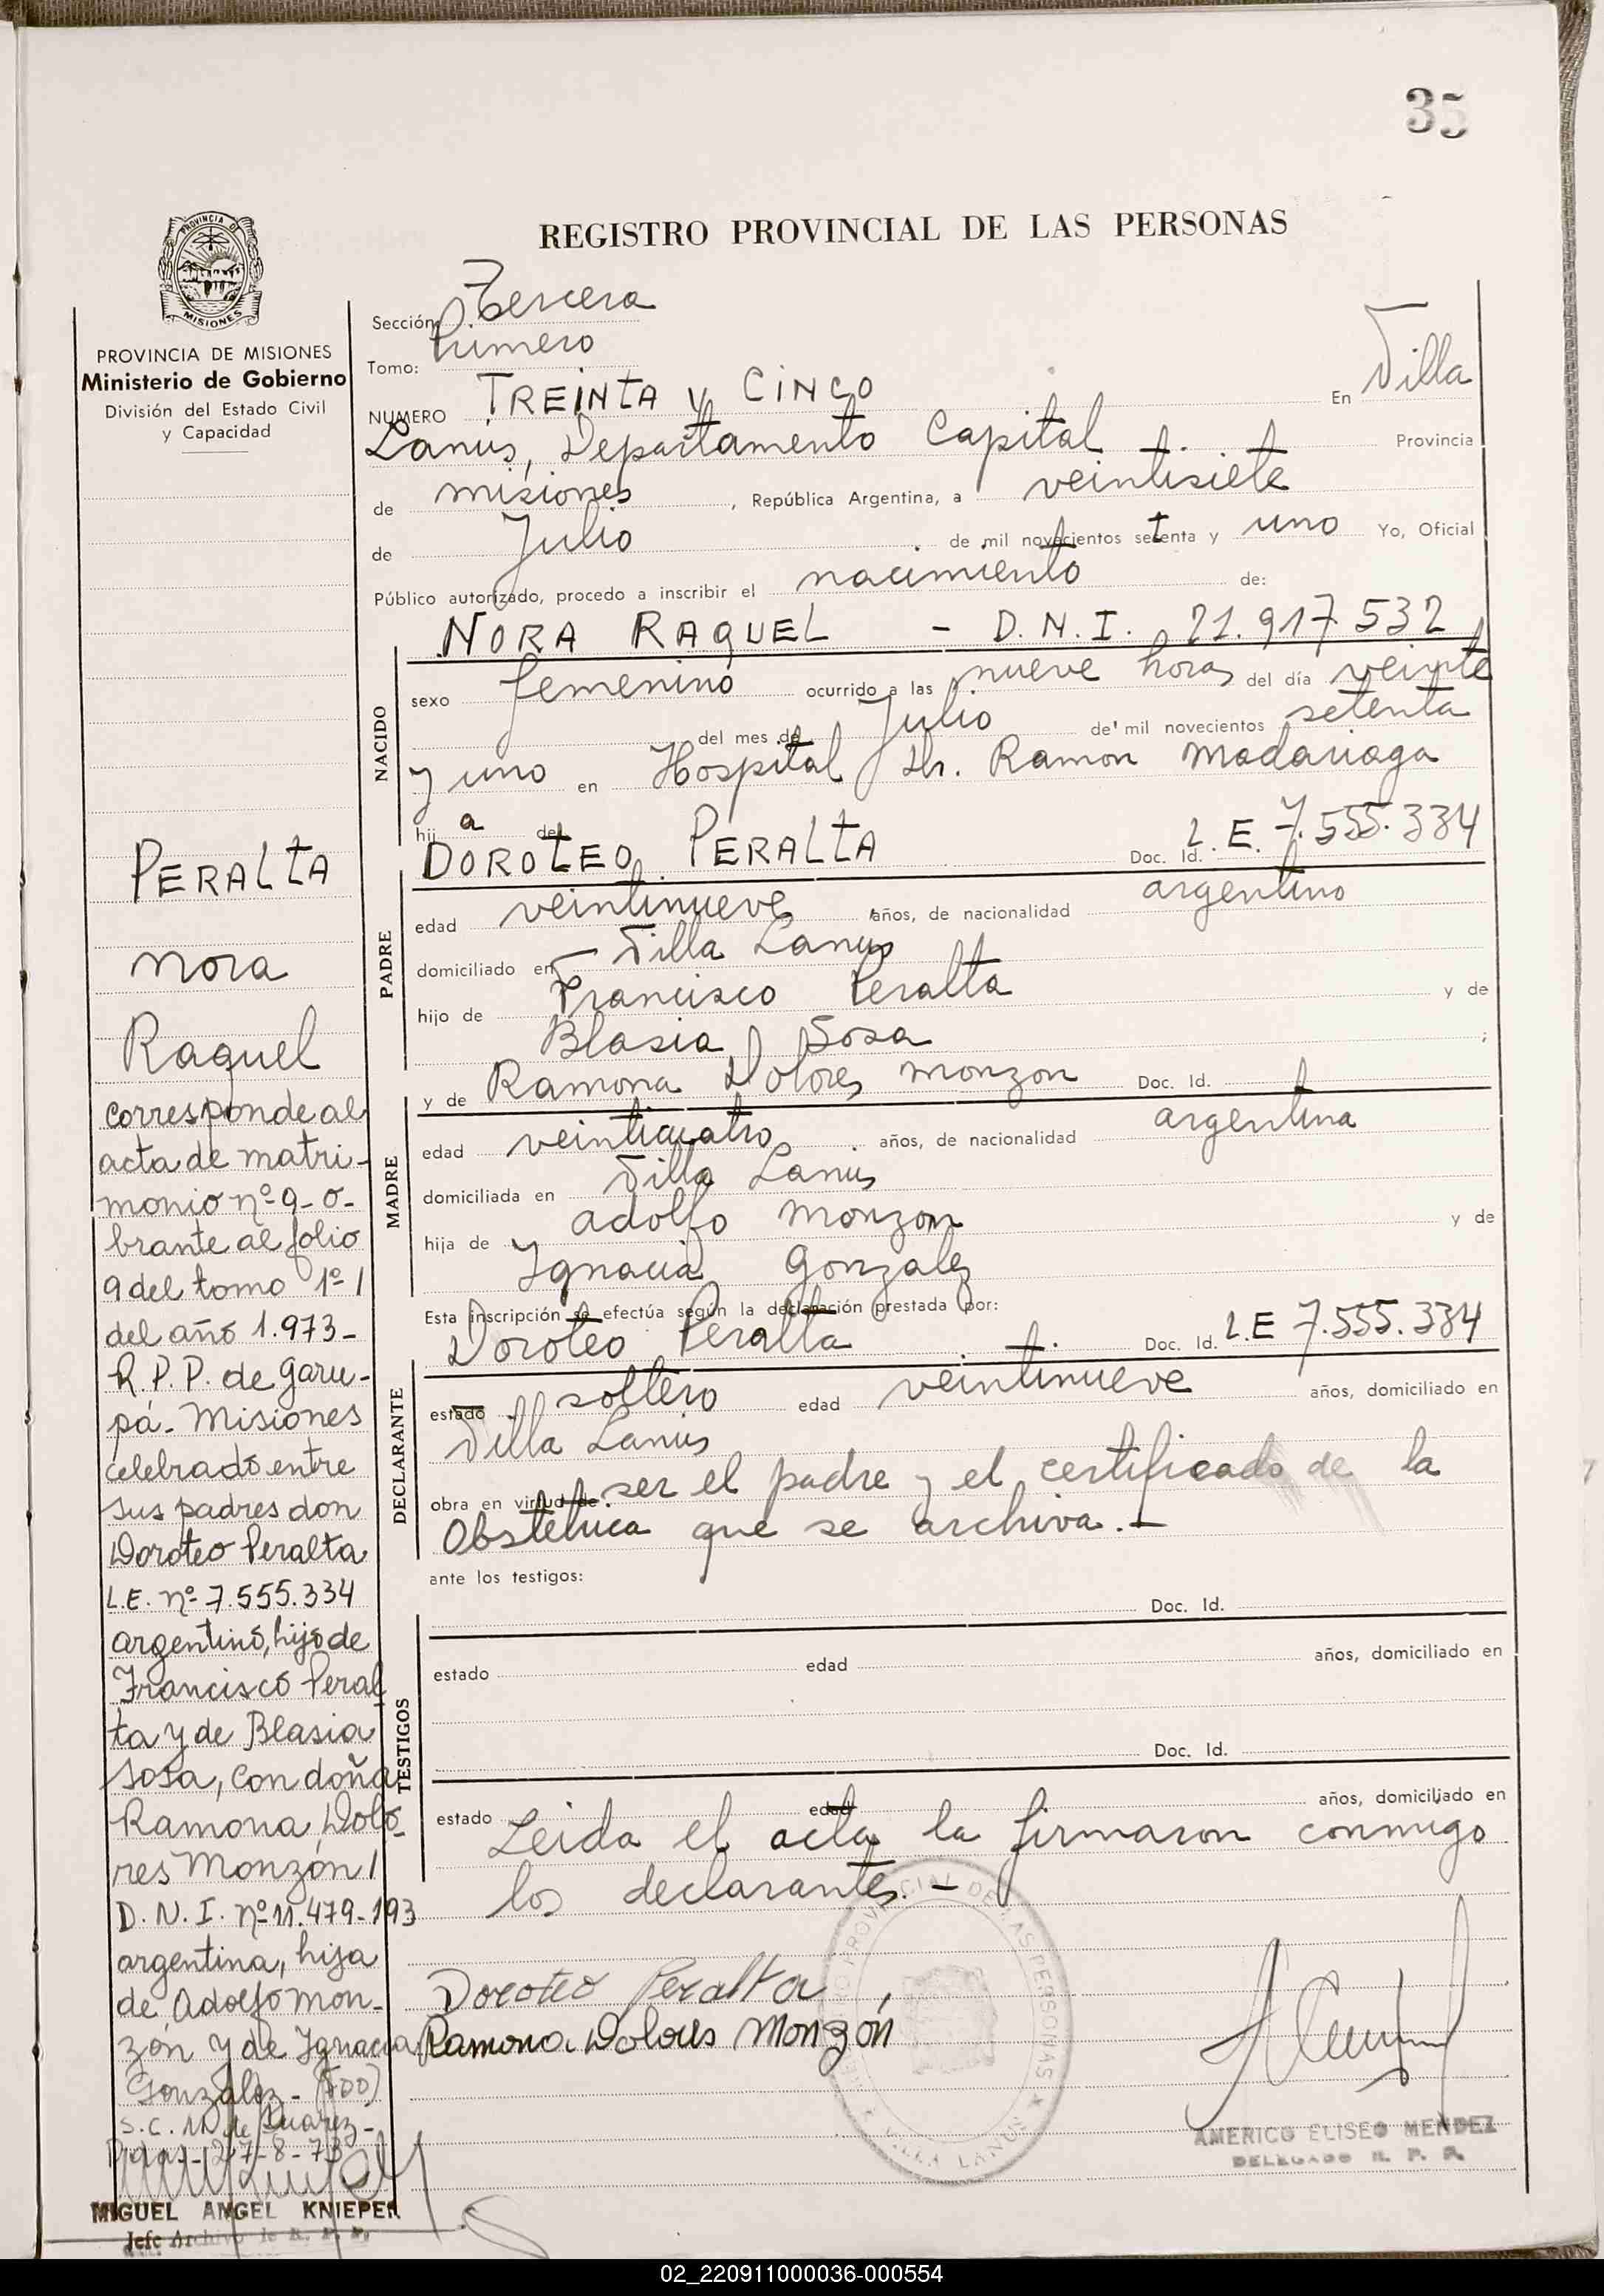 35
REGISTRO PROVINCIAL DE LAS PERSONAS
PROVINCIA DE MISIONES
Ministerio de Gobierno
División del Estado Civil
y Capacidad
PERALTA
Nora
Raquel
corresponde al
acta de matri-
monio nº 9-o-
brante al folio
9 del tomo 1º /
del año 1.973-
R.P.P. de Garu-
pá- Misiones
celebrado entre
sus padres don
Doroteo Peralta
L.E. nº 7.555.334
argentino, hijo de
Francisco Peral
ta y de Blasia
Sosa, con doña
Ramona Dolo-
res Monzón /
D.N.I. nº 11.479-193
argentina, hija
de Adolfo Mon-
zón y de Ignacia
González - (FDO)
S.C. M de Suarez-
Pdas-27-8-73
MIGUEL ANGEL KNIEPER
Jefe Archivo de R. P. P.
Sección Tercera
Tomo: Primero
NUMERO TREINTA y CINCO En Villa
Lanús, Departamento Capital Provincia
de misiones, República Argentina, a veintisiete
de Julio de mil novecientos setenta y uno Yo, Oficial
Público autorizado, procedo a inscribir el nacimiento de:
NORA RAQUEL - D.N.I. 21.917.532
NACIDO
sexo femenino ocurrido a las nueve horas del día veinte
del mes de Julio de mil novecientos setenta
y uno en Hospital Dr. Ramon Madariaga
hij a de
DOROTEO PERALTA Doc. Id. L.E. 7.555.334
PADRE
edad veintinueve años, de nacionalidad argentino
domiciliado en Villa Lanus
hijo de Francisco Peralta y de
Blasia Sosa ;
y de Ramona Dolores monzon Doc. Id.
MADRE
edad veinticuatro años, de nacionalidad argentina
domiciliada en Villa Lanús
hija de adolfo monzon y de
Ygnacia Gonzalez
Esta inscripción se efectúa según la declaración prestada por:
Doroteo Peralta Doc. Id. L.E 7.555.334
DECLARANTE
estado soltero edad veintinueve años, domiciliado en
Villa Lanús
obra en virtud de ser el padre y el certificado de la
Obstetrica que se archiva.-
ante los testigos:
Doc. Id.
TESTIGOS
estado edad años, domiciliado en
Doc. Id.
estado edad años, domiciliado en
Leida el acta la firmaron conmigo
los declarantes.-
Doroteo Peralta
Ramona Dolores Monzón
AMERICO ELISEO MENDEZ
DELEGADO R. P. P.
02_220911000036-000554